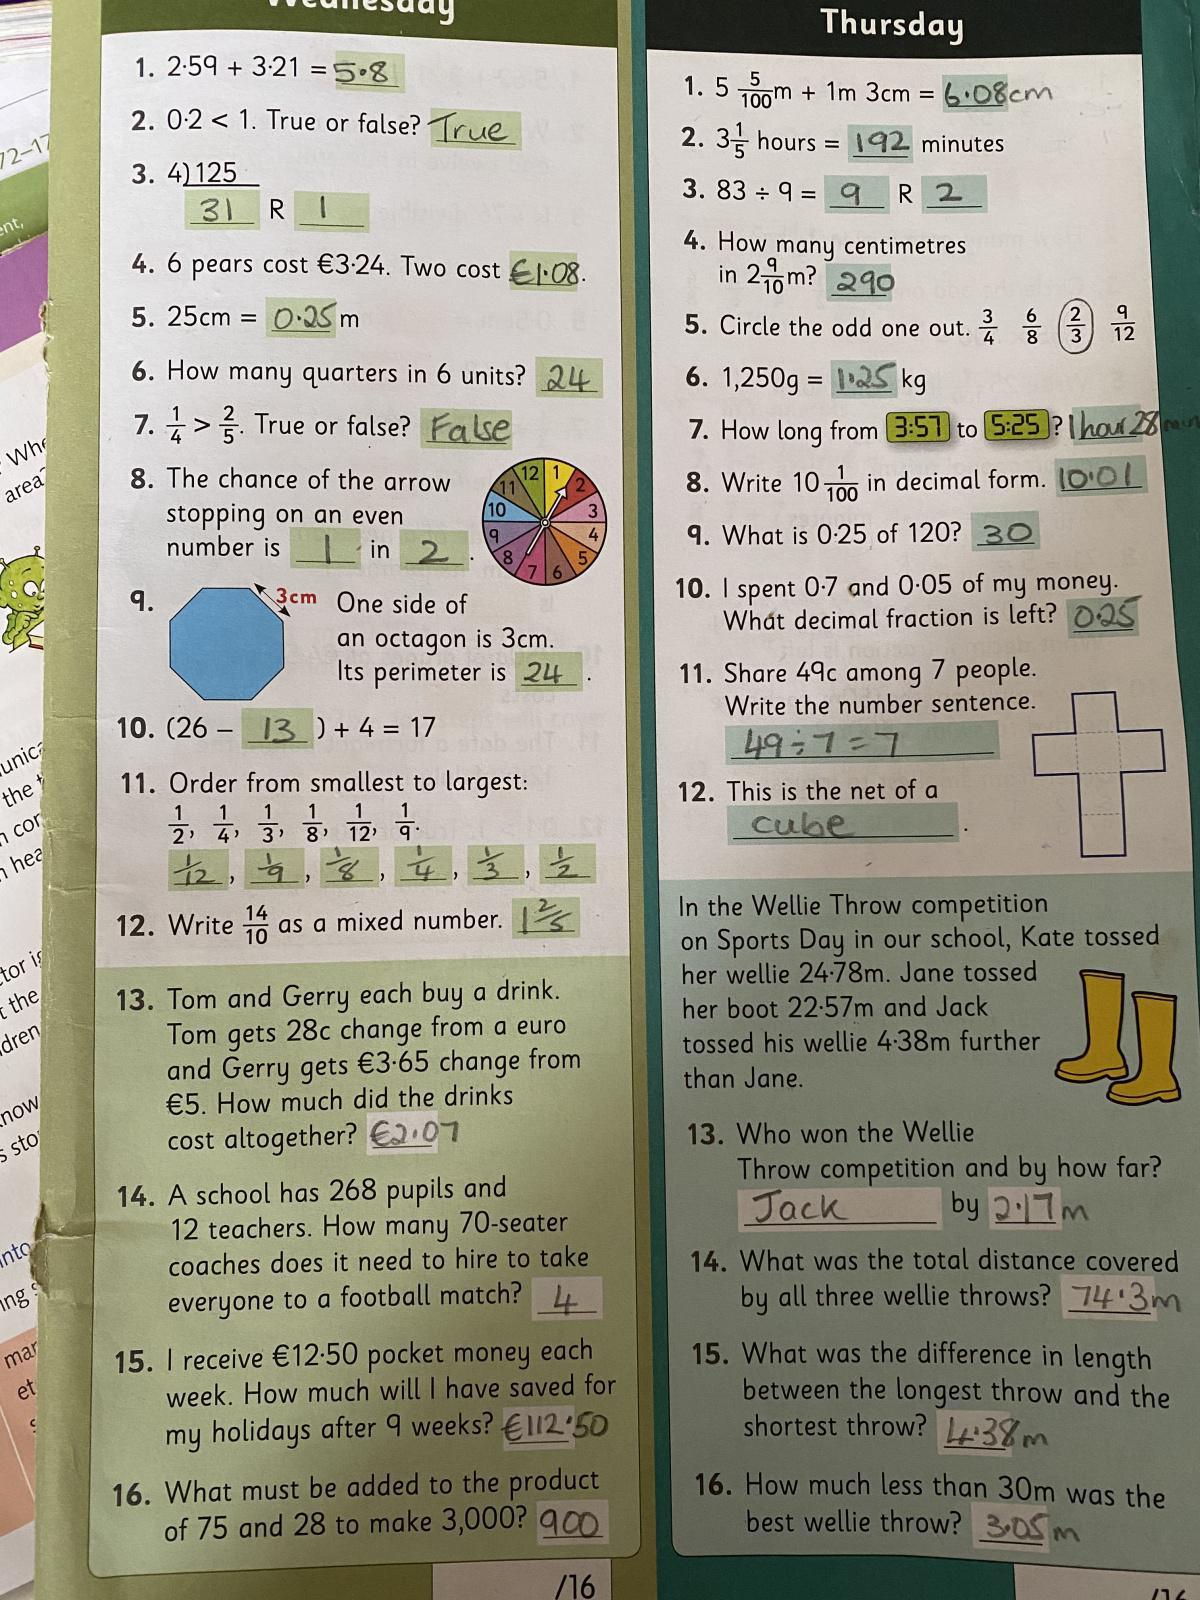 Wednesday
1. 2·59 + 3·21 = 5·8
2. 0·2 < 1. True or false? True
3. 4)125
31 R 1
4. 6 pears cost €3·24. Two cost €1·08.
5. 25cm = 0·25 m
6. How many quarters in 6 units? 24
7. 1/4 > 2/5. True or false? False
8. The chance of the arrow
stopping on an even
number is 1 in 2.
12 1 2 3 4 5 6 7 8 9 10 11
9. 3cm One side of
an octagon is 3cm.
Its perimeter is 24.
10. (26 – 13) + 4 = 17
11. Order from smallest to largest:
1/2, 1/4, 1/3, 1/8, 1/12, 1/9.
1/12, 1/9, 1/8, 1/4, 1/3, 1/2
12. Write 14/10 as a mixed number. 1 2/5
13. Tom and Gerry each buy a drink.
Tom gets 28c change from a euro
and Gerry gets €3·65 change from
€5. How much did the drinks
cost altogether? €2·07
14. A school has 268 pupils and
12 teachers. How many 70-seater
coaches does it need to hire to take
everyone to a football match? 4
15. I receive €12·50 pocket money each
week. How much will I have saved for
my holidays after 9 weeks? €112·50
16. What must be added to the product
of 75 and 28 to make 3,000? 900
/16
Thursday
1. 5 5/100m + 1m 3cm = 6·08cm
2. 3 1/5 hours = 192 minutes
3. 83 ÷ 9 = 9 R 2
4. How many centimetres
in 2 9/10m? 290
5. Circle the odd one out. 3/4 6/8 2/3 9/12
6. 1,250g = 1·25 kg
7. How long from 3:57 to 5:25? 1 hour 28 min
8. Write 10 1/100 in decimal form. 10·01
9. What is 0·25 of 120? 30
10. I spent 0·7 and 0·05 of my money.
What decimal fraction is left? 0·25
11. Share 49c among 7 people.
Write the number sentence.
49÷7=7
12. This is the net of a
cube.
In the Wellie Throw competition
on Sports Day in our school, Kate tossed
her wellie 24·78m. Jane tossed
her boot 22·57m and Jack
tossed his wellie 4·38m further
than Jane.
13. Who won the Wellie
Throw competition and by how far?
Jack by 2·17m
14. What was the total distance covered
by all three wellie throws? 74·3m
15. What was the difference in length
between the longest throw and the
shortest throw? 4·38m
16. How much less than 30m was the
best wellie throw? 3.05m
72–17
ent,
Whe
area
the
now
into
mar
et